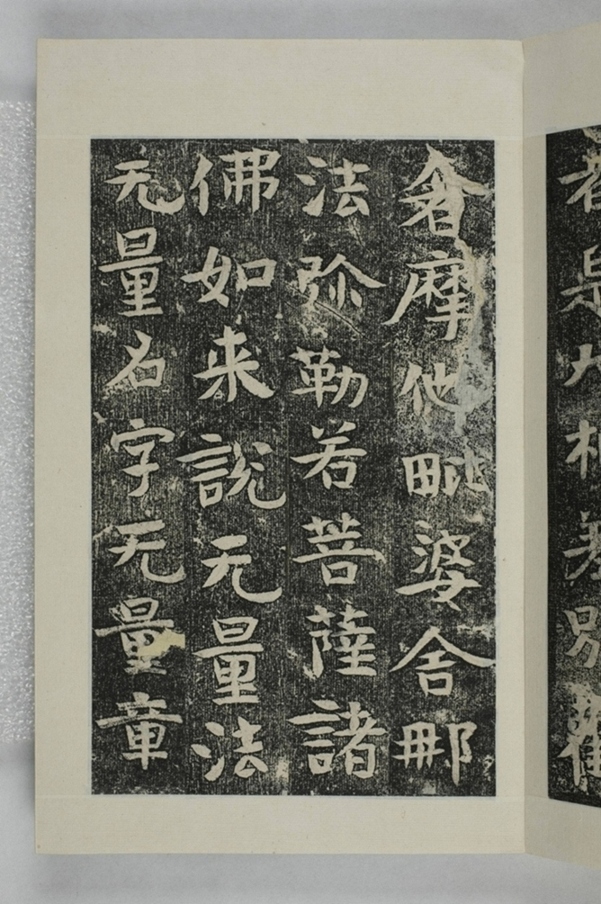 者是九相差別觀
奢摩他毗婆舍那
法弥勒若菩薩諸
佛如来說无量法
无量名字无量章